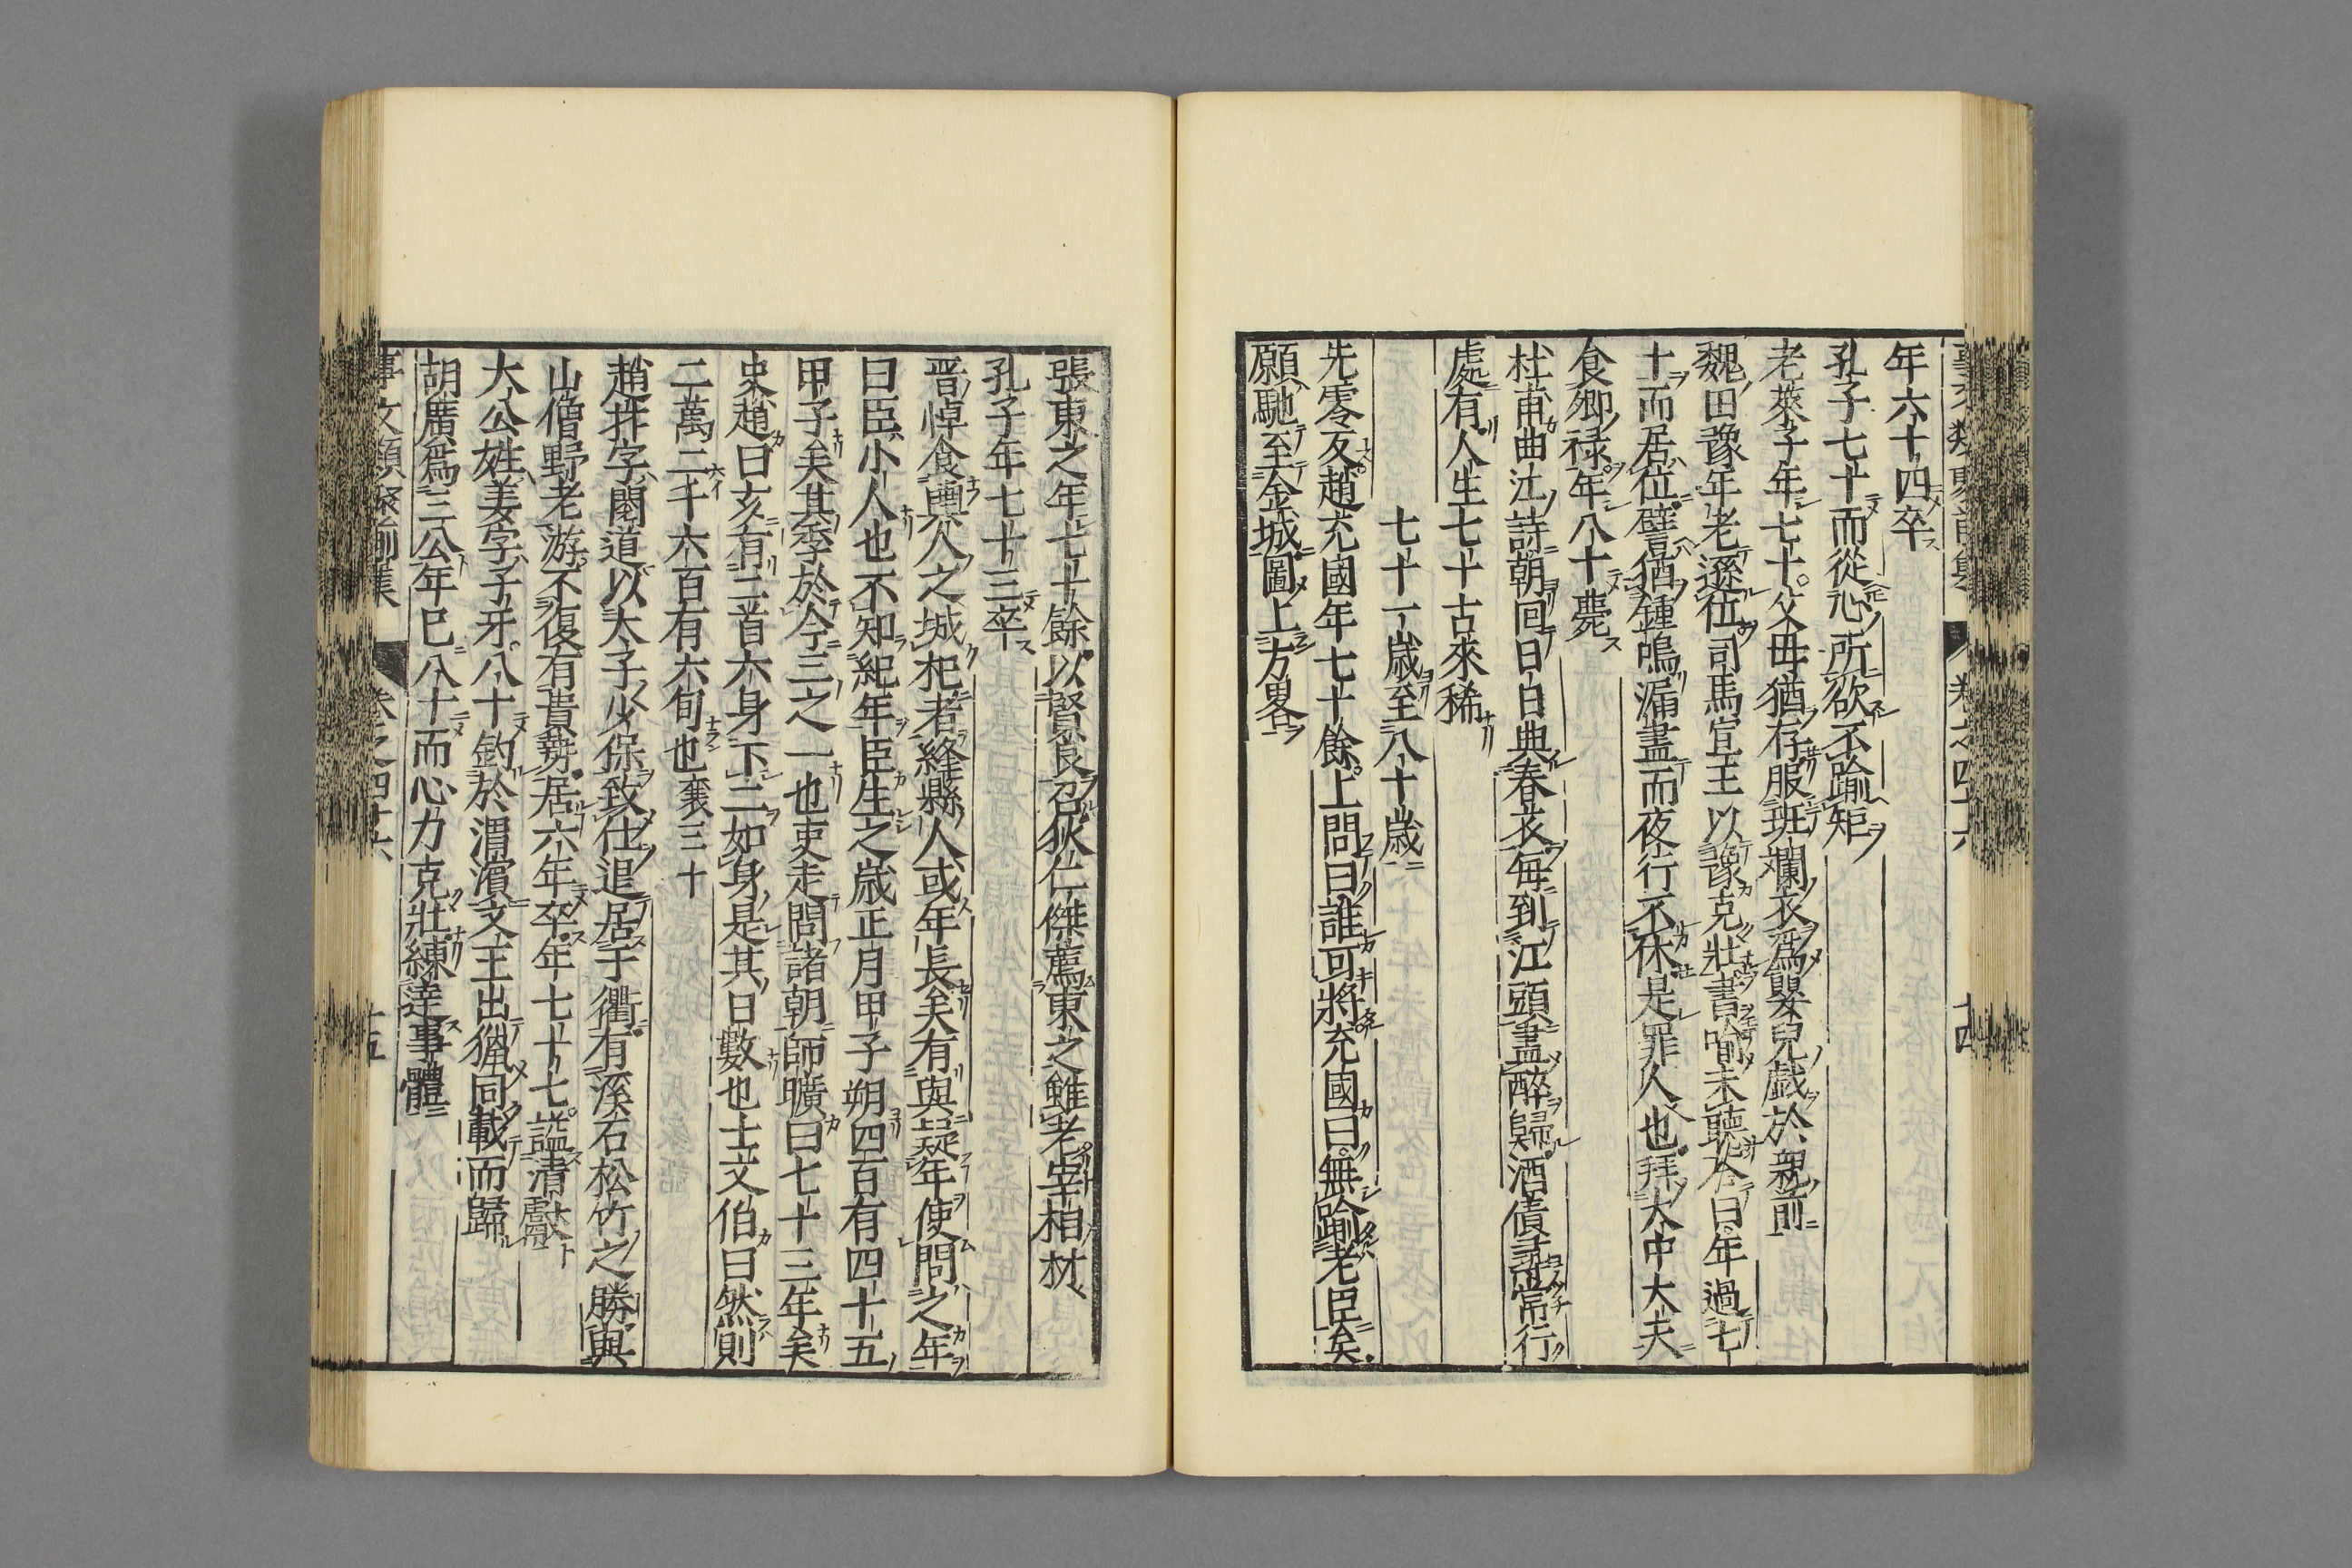 年六十四卒
孔子七十而從心所欲不踰矩
老萊子年七十父母猶存服班斕衣爲嬰兒戯於親前
魏田豫年老遜位司馬宣王以豫克壯書喻未聽荅曰年過七
十而居位譬猶鍾鳴漏盡而夜行不休是罪人也拜大中大夫
食卿禄年八十薨
杜甫曲江詩朝回日日典春衣毎到江頭盡醉歸酒債尋常行
處有人生七十古來稀
七十一歳至八十歳
先零反趙充國年七十餘上問曰誰可將充國曰無踰老臣矣
願馳至金城圖上方畧
張東之年七十餘以賢良召狄仁傑薦東之雖老宰相材
孔子年七十三卒
晋悼食輿人之城杞者絳縣人或年長矣有與疑年使問之年
曰臣小人也不知紀年臣生之歳正月甲子朔四百有四十五
甲子矣其季於今三之一也吏走問諸朝師曠曰七十三年矣
史趙曰亥有二首六身下二如身是其日數也士文伯曰然則
二萬二千六百有六旬也襄三十
趙抃字閱道以太子少保致仕退居于衢有溪石松竹之勝與
山僧野老游不復有貴勢居六年卒年七十七謚清獻
大公姓姜字子牙八十釣於渭濱文王出獵同載而歸
胡廣爲三公年已八十而心力克壯練達事體
事文類聚前集
卷之四十六
十五